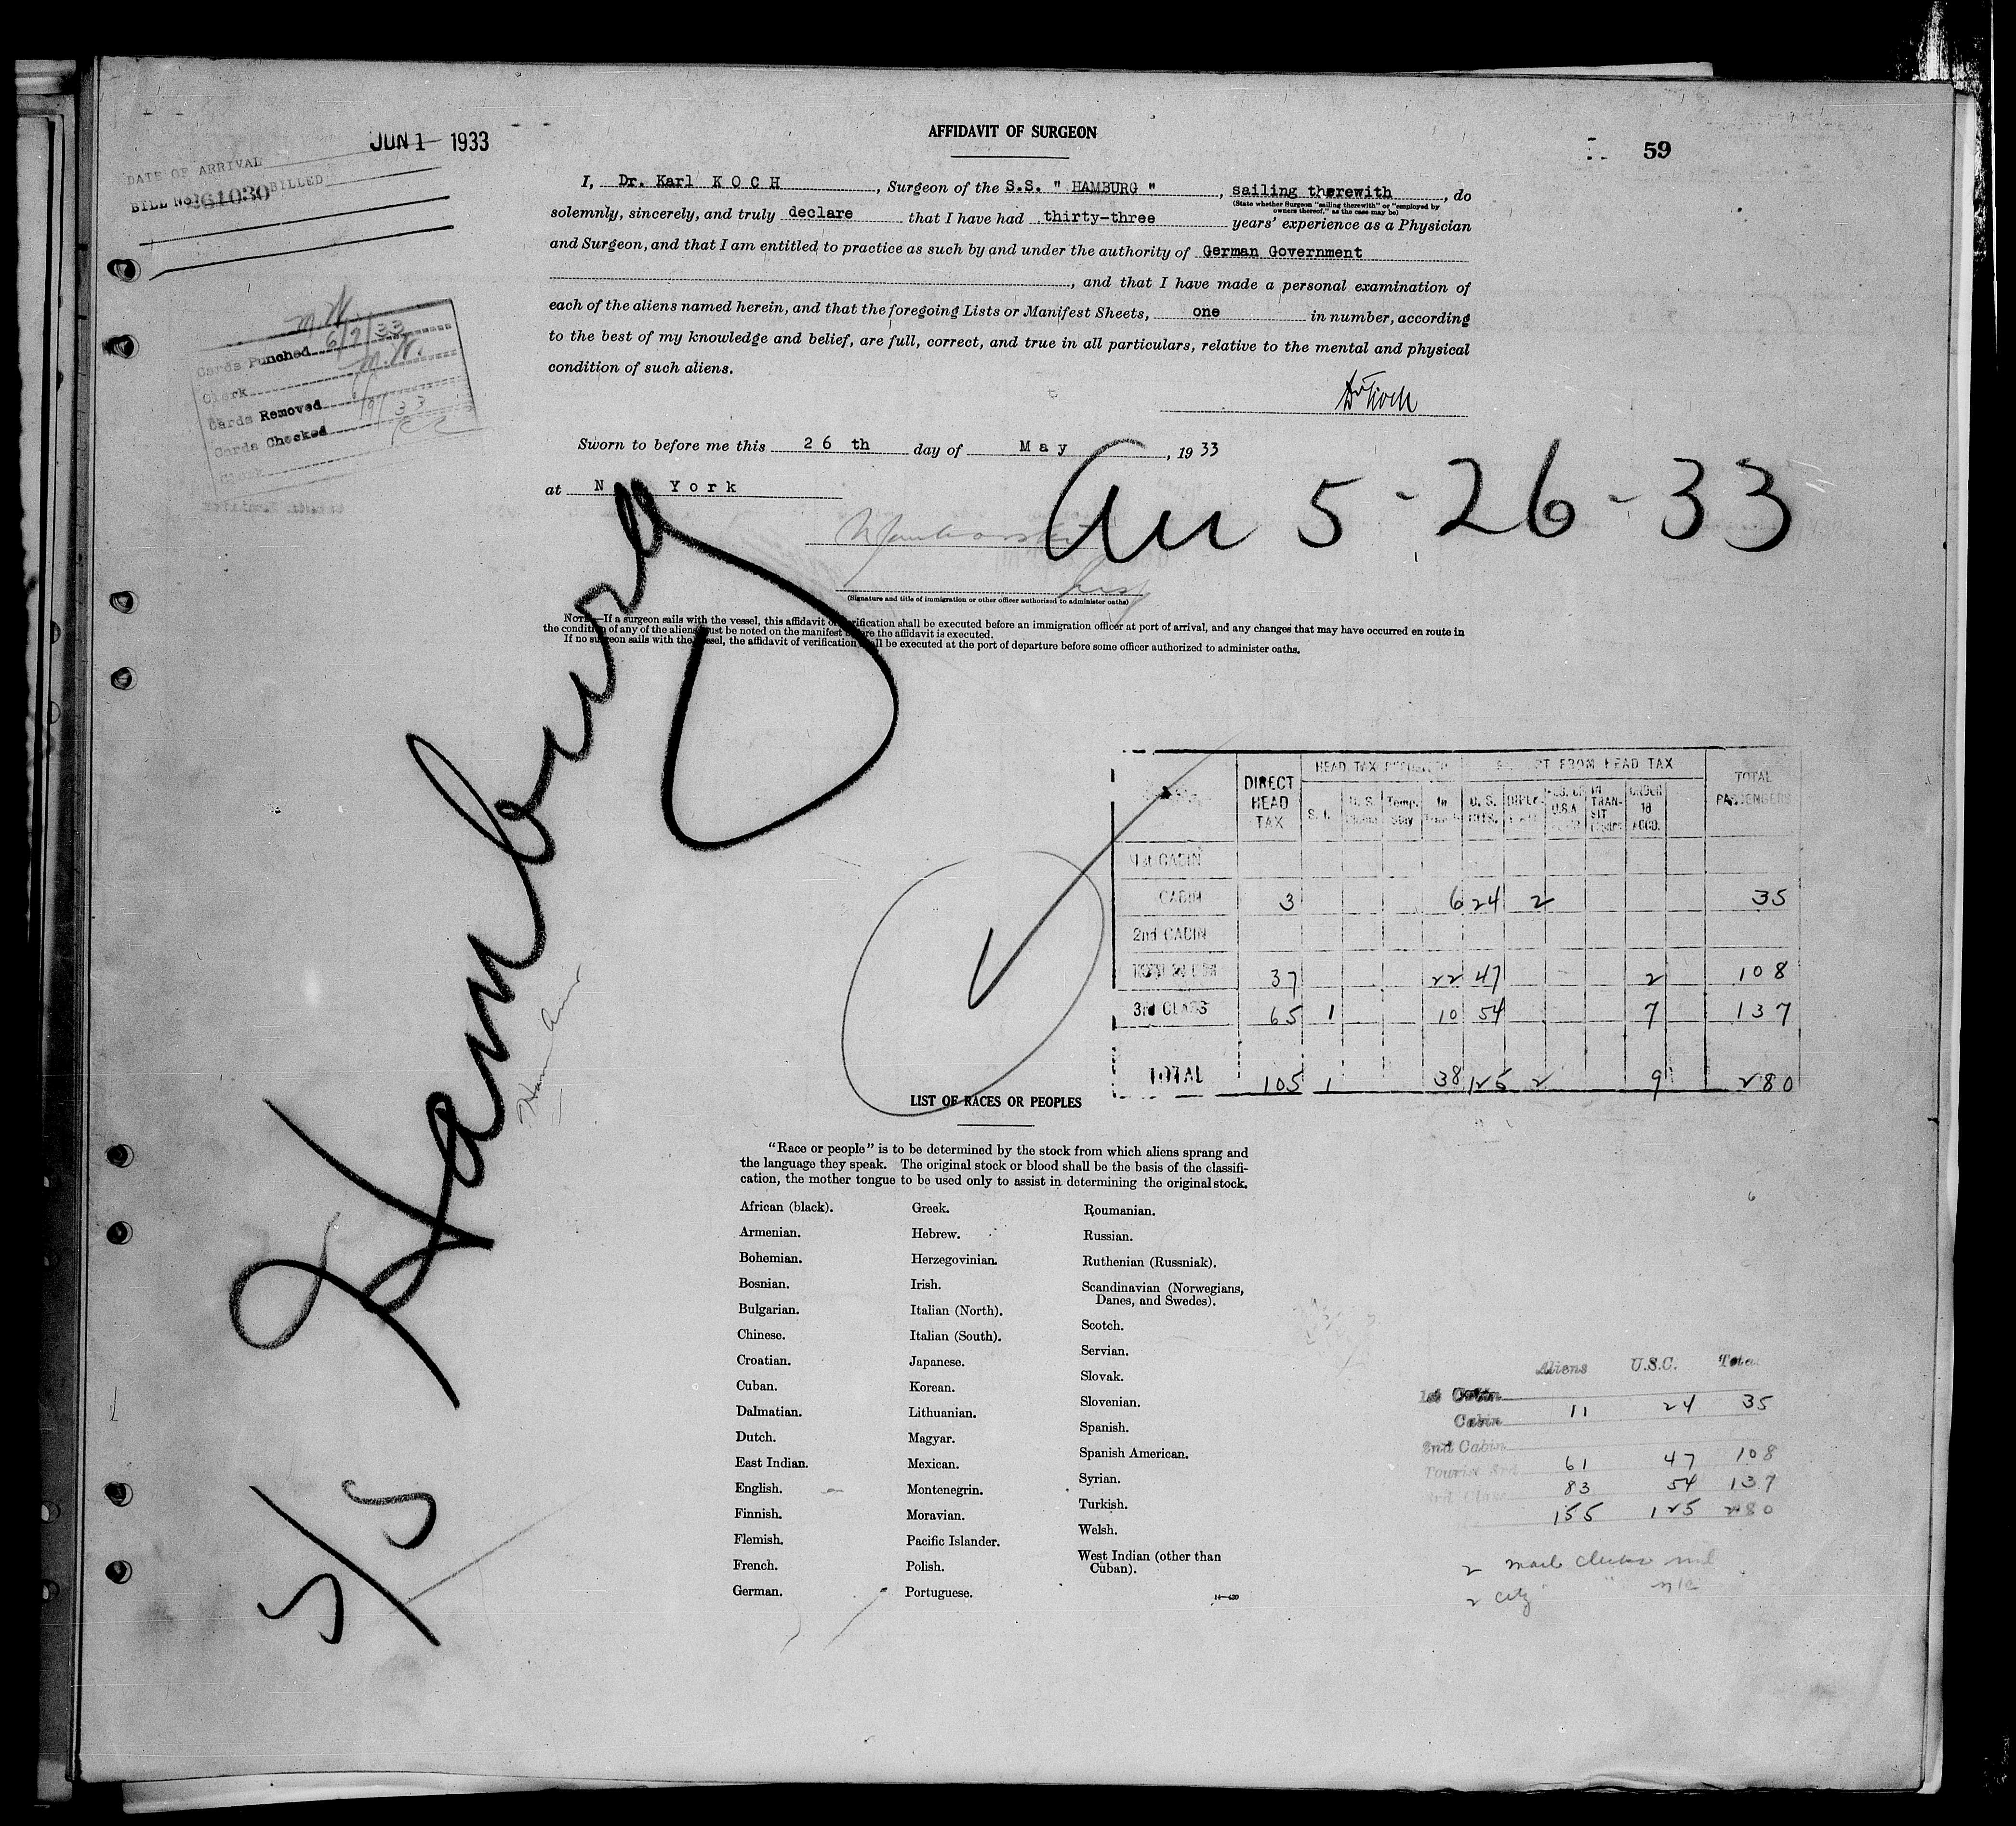 JUN 1 1933
DATE OF ARRIVAL
BILL No. 261030 BILLED
AFFIDAVIT OF SURGEON
59
I, Dr. Karl K O C H, Surgeon of the S.S. " HAMBURG ", sailing therewith, do
(State whether Surgeon "sailing therewith" or "employed by
owners thereof," as the case may be)
solemnly, sincerely, and truly declare that I have had thirty-three years' experience as a Physician
and Surgeon, and that I am entitled to practice as such by and under the authority of German Government
, and that I have made a personal examination of
each of the aliens named herein, and that the foregoing Lists or Manifest Sheets, one in number, according
to the best of my knowledge and belief, are full, correct, and true in all particulars, relative to the mental and physical
condition of such aliens.
Dr Koch
Cards Punched 6/7/33
Clerk M.W.
Cards Removed
Cards Checked 33
Clerk
Sworn to before me this 2 6 th day of M a y, 19 33
at N York
Arr 5-26-33
(Signature and title of immigration or other officer authorized to administer oaths)
NOTE.—If a surgeon sails with the vessel, this affidavit of verification shall be executed before an immigration officer at port of arrival, and any changes that may have occurred en route in
the condition of any of the aliens must be noted on the manifest before the affidavit is executed.
If no surgeon sails with the vessel, the affidavit of verification shall be executed at the port of departure before some officer authorized to administer oaths.
S/S Hamburg
Ham Amr
DIRECT HEAD TAX
HEAD TAX
FROM HEAD TAX
TOTAL PASSENGERS
S. I. U. S. Temp. Stay In U. S. CITS. DIPLO- U.S.A. IN TRAN-SIT UNDER 16 ACCD.
1st CABIN
CABIN 3 6 24 2 35
2nd CABIN
37 22 47 2 108
3rd CLASS 65 1 10 54 7 137
TOTAL 105 1 38 125 2 9 280
LIST OF RACES OR PEOPLES
"Race or people" is to be determined by the stock from which aliens sprang and
the language they speak. The original stock or blood shall be the basis of the classifi-
cation, the mother tongue to be used only to assist in determining the original stock.
African (black).
Armenian.
Bohemian.
Bosnian.
Bulgarian.
Chinese.
Croatian.
Cuban.
Dalmatian.
Dutch.
East Indian.
English.
Finnish.
Flemish.
French.
German.
Greek.
Hebrew.
Herzegovinian.
Irish.
Italian (North).
Italian (South).
Japanese.
Korean.
Lithuanian.
Magyar.
Mexican.
Montenegrin.
Moravian.
Pacific Islander.
Polish.
Portuguese.
Roumanian.
Russian.
Ruthenian (Russniak).
Scandinavian (Norwegians,
Danes, and Swedes).
Scotch.
Servian.
Slovak.
Slovenian.
Spanish.
Spanish American.
Syrian.
Turkish.
Welsh.
West Indian (other than
Cuban).
Aliens U.S.C. Total
1st Cabin
Cabin 11 24 35
2nd Cabin
Tourist 3rd 61 47 108
3rd Class 83 54 137
155 125 280
2 mail clerks
2 city "